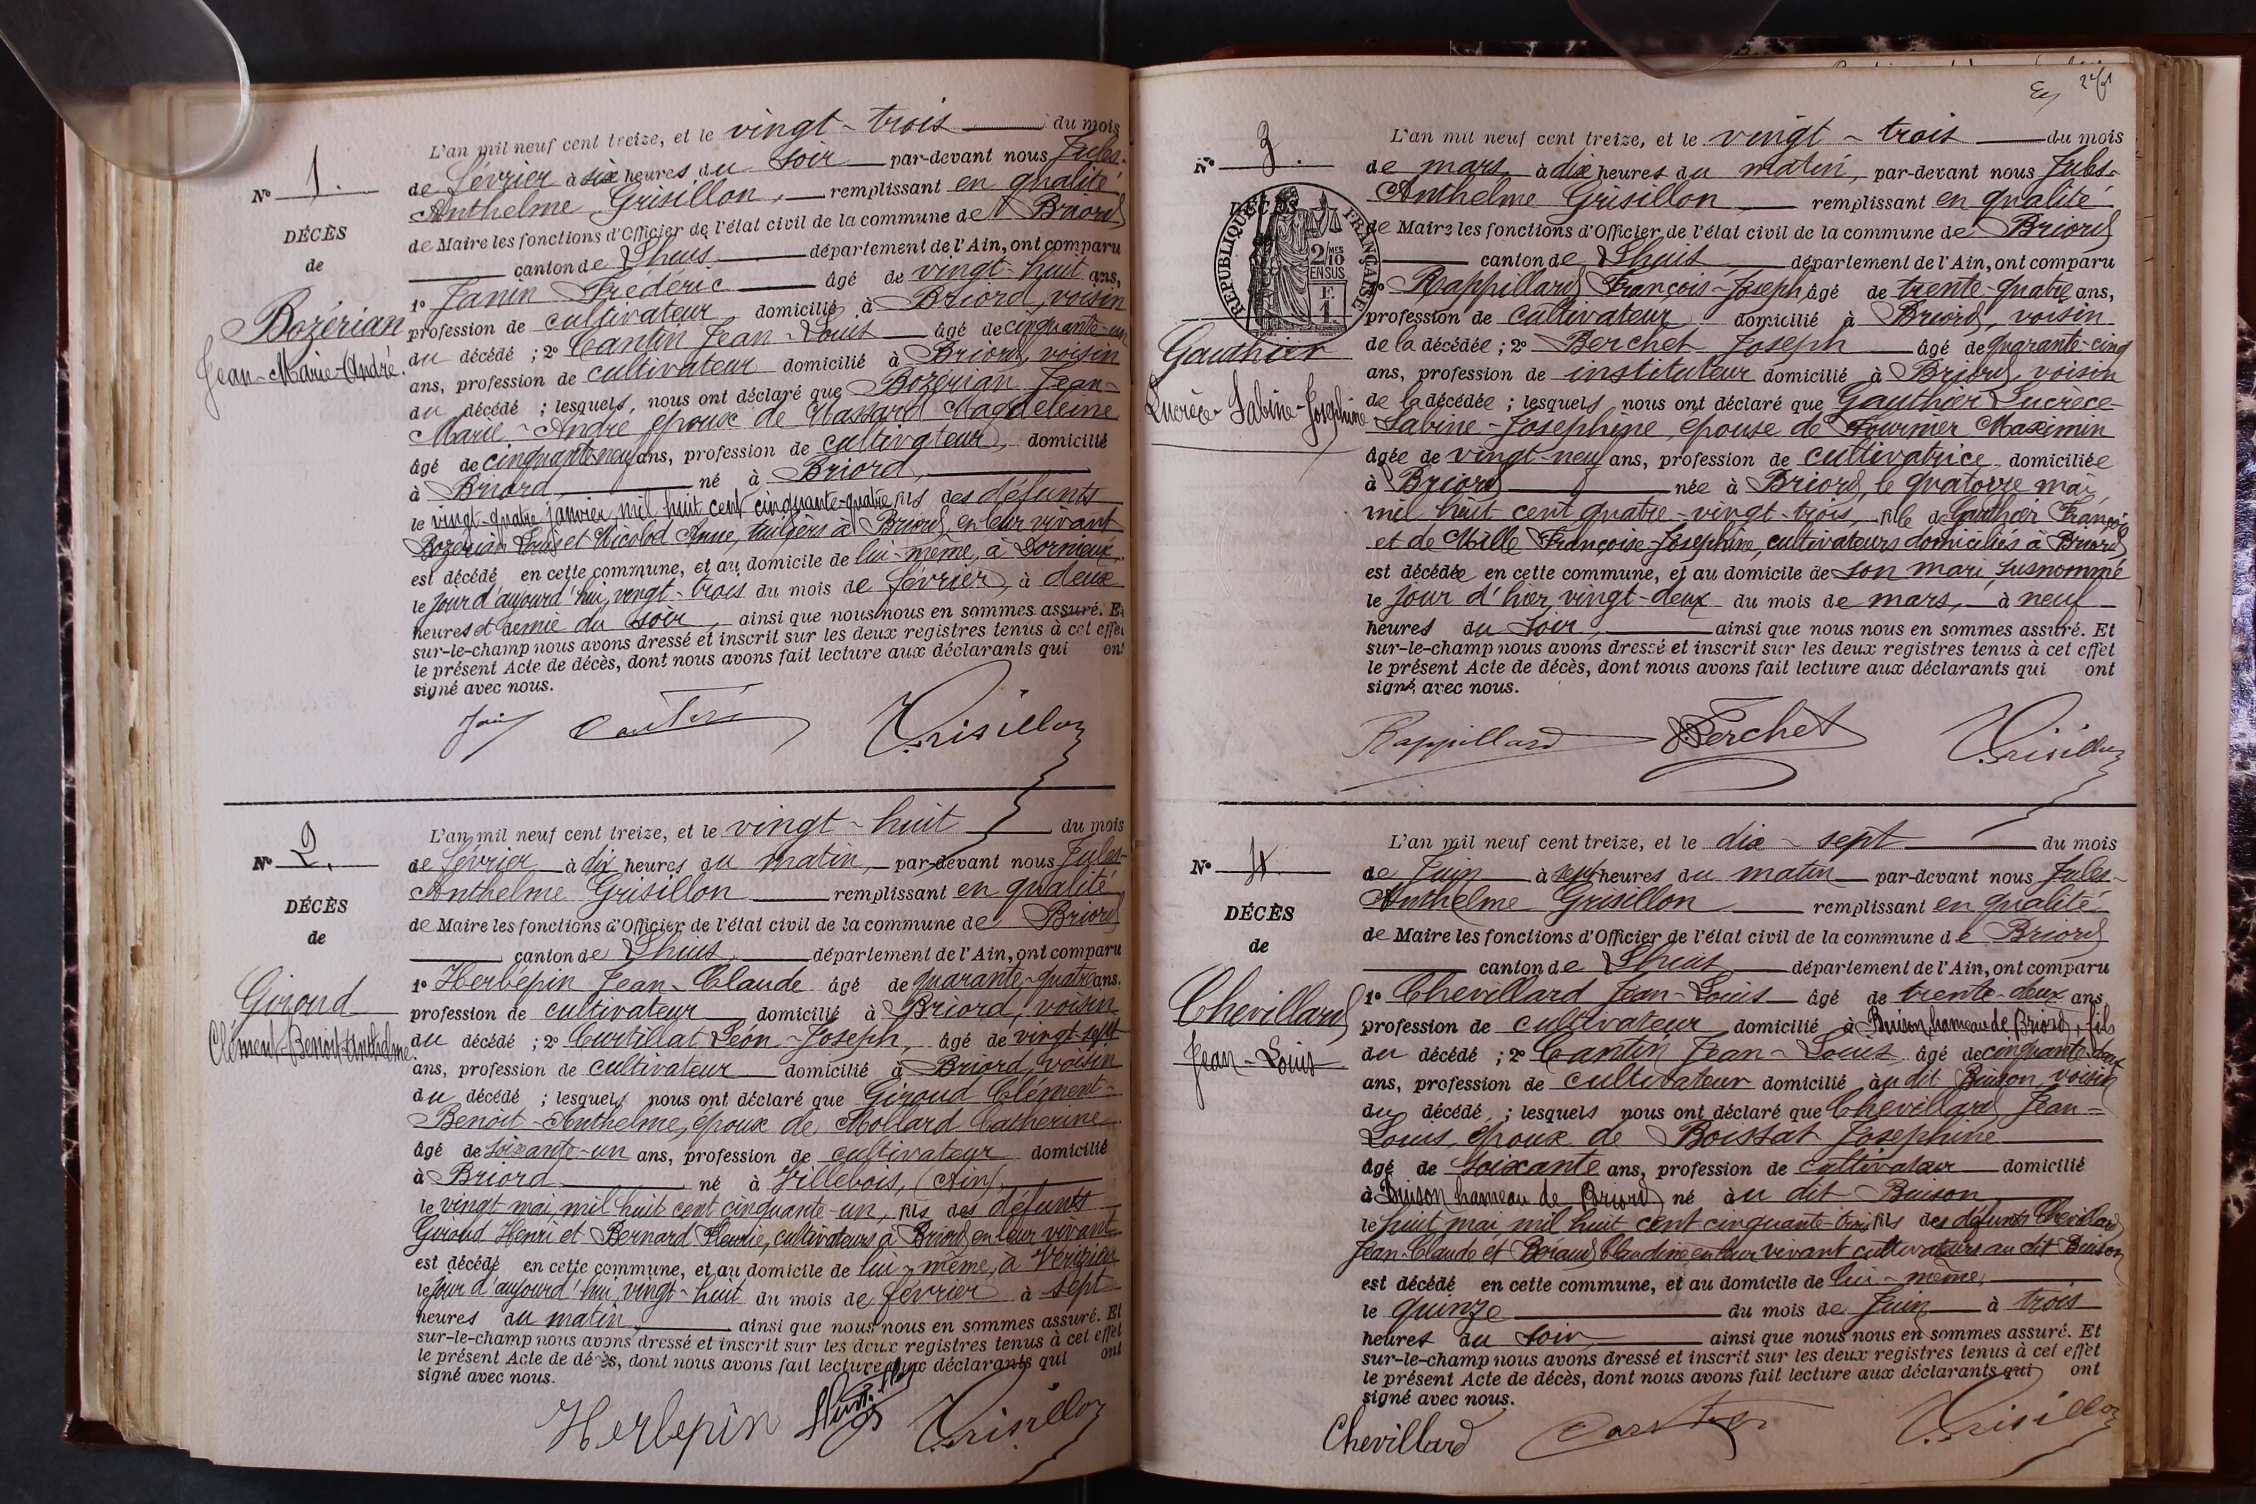 N° 1.
DÉCÈS
de
Bozérian
Jean-Marie-André.
L'an mil neuf cent treize, et le vingt-trois du mois
de février à six heures du soir par-devant nous Jules-
Anthelme Grisillon, remplissant en qualité
de Maire les fonctions d'Officier de l'état civil de la commune de Briord
canton de Lhuis département de l'Ain, ont comparu
1° Janin Frédéric âgé de vingt-huit ans,
profession de cultivateur domicilié à Briord, voisin
du décédé ; 2° Cantin Jean-Louis âgé de cinquante-un
ans, profession de cultivateur domicilié à Briord, voisin
du décédé ; lesquels, nous ont déclaré que Bozérian Jean-
Marie-André époux de Massard Magdeleine
âgé de cinquante-neuf ans, profession de cultivateur, domicilié
à Briord, né à Briord,
le vingt-quatre janvier mil huit cent cinquante-quatre, fils des défunts
Bozérian Louis et Nicolod Anne, tuiliers à Briord, en leur vivant
est décédé en cette commune, et au domicile de lui-même, à Dornieux,
le jour d'aujourd'hui, vingt-trois du mois de février, à deux
heures et demie du soir, ainsi que nous nous en sommes assuré. Et
sur-le-champ nous avons dressé et inscrit sur les deux registres tenus à cet effet
le présent Acte de décès, dont nous avons fait lecture aux déclarants qui ont
signé avec nous.
Cantin Grisillon
N° 2.
DÉCÈS
de
Giroud
Clément-Benoit-Anthelme.
L'an mil neuf cent treize, et le vingt-huit du mois
de février à dix heures du matin, par-devant nous Jules-
Anthelme Grisillon remplissant en qualité
de Maire les fonctions d'Officier de l'état civil de la commune de Briord
canton de Lhuis, département de l'Ain, ont comparu
1° Herbépin Jean-Claude âgé de quarante-quatre ans.
profession de cultivateur domicilié à Briord, voisin
du décédé ; 2° Curtillat Léon-Joseph, âgé de vingt-sept
ans, profession de cultivateur domicilié à Briord, voisin
du décédé ; lesquels nous ont déclaré que Giroud Clément-
Benoit-Anthelme, époux de Mollard Catherine
âgé de soixante-un ans, profession de cultivateur domicilié
à Briord né à Villebois, (Ain),
le vingt mai mil huit cent cinquante-un, fils des défunts
Giroud Henri et Bernard Fleurie, cultivateurs à Briord en leur vivant
est décédé en cette commune, et au domicile de lui-même, à Vérizieu
le jour d'aujourd'hui, vingt-huit du mois de février à sept
heures du matin, ainsi que nous nous en sommes assuré. Et
sur-le-champ nous avons dressé et inscrit sur les deux registres tenus à cet effet
le présent Acte de décès, dont nous avons fait lecture aux déclarants qui ont
signé avec nous.
Herbepin Grisillon
N° 3.
RÉPUBLIQUE FRANÇAISE
2/10 MES
EN SUS
DÉCÈS
Gauthier
Lucrèce-Sabine-Josephine
L'an mil neuf cent treize, et le vingt-trois du mois
de mars, à dix heures du matin, par-devant nous Jules-
Anthelme Grisillon remplissant en qualité
de Maire les fonctions d'Officier de l'état civil de la commune de Briord
canton de Lhuis département de l'Ain, ont comparu
Rappillard François-Joseph, âgé de trente-quatre ans,
profession de cultivateur domicilié à Briord, voisin
de la décédée ; 2° Berchet Joseph âgé de quarante-cinq
ans, profession de instituteur domicilié à Briord, voisin
de la décédée ; lesquels nous ont déclaré que Gauthier Lucrèce-
Sabine-Josephine, épouse de Fournier Maximin
âgée de vingt-neuf ans, profession de cultivatrice domiciliée
à Briord née à Briord, le quatorze mai
mil huit cent quatre-vingt-trois, fille de Gauthier François
et de Mille Françoise-Josephine, cultivateurs domiciliés à Briord
est décédée en cette commune, et au domicile de son mari susnommé
le jour d'hier, vingt-deux du mois de mars, à neuf
heures du soir, ainsi que nous nous en sommes assuré. Et
sur-le-champ nous avons dressé et inscrit sur les deux registres tenus à cet effet
le présent Acte de décès, dont nous avons fait lecture aux déclarants qui ont
signé avec nous.
Rappillard Berchet Grisillon
N° 4.
DÉCÈS
de
Chevillard
Jean-Louis
L'an mil neuf cent treize, et le dix-sept du mois
de Juin à sept heures du matin par-devant nous Jules-
Anthelme Grisillon remplissant en qualité
de Maire les fonctions d'Officier de l'état civil de la commune de Briord
canton de Lhuis département de l'Ain, ont comparu
1° Chevillard Jean-Louis âgé de trente-deux ans
profession de cultivateur domicilié à Buison, hameau de Briord, fils
du décédé ; 2° Cantin Jean-Louis âgé de cinquante-deux
ans, profession de cultivateur domicilié au dit Buison, voisin
du décédé ; lesquels nous ont déclaré que Chevillard Jean-
Louis, époux de Boissat Josephine
âgé de soixante ans, profession de cultivateur domicilié
à Buison hameau de Briord né au dit Buison
le huit mai mil huit cent cinquante-trois fils des défunts Chevillard
Jean-Claude et Béraud Claudine en leur vivant cultivateurs au dit Buison
est décédé en cette commune, et au domicile de lui-même,
le quinze du mois de Juin à trois
heures du soir, ainsi que nous nous en sommes assuré. Et
sur-le-champ nous avons dressé et inscrit sur les deux registres tenus à cet effet
le présent Acte de décès, dont nous avons fait lecture aux déclarants qui ont
signé avec nous.
Chevillard Cantin Grisillon